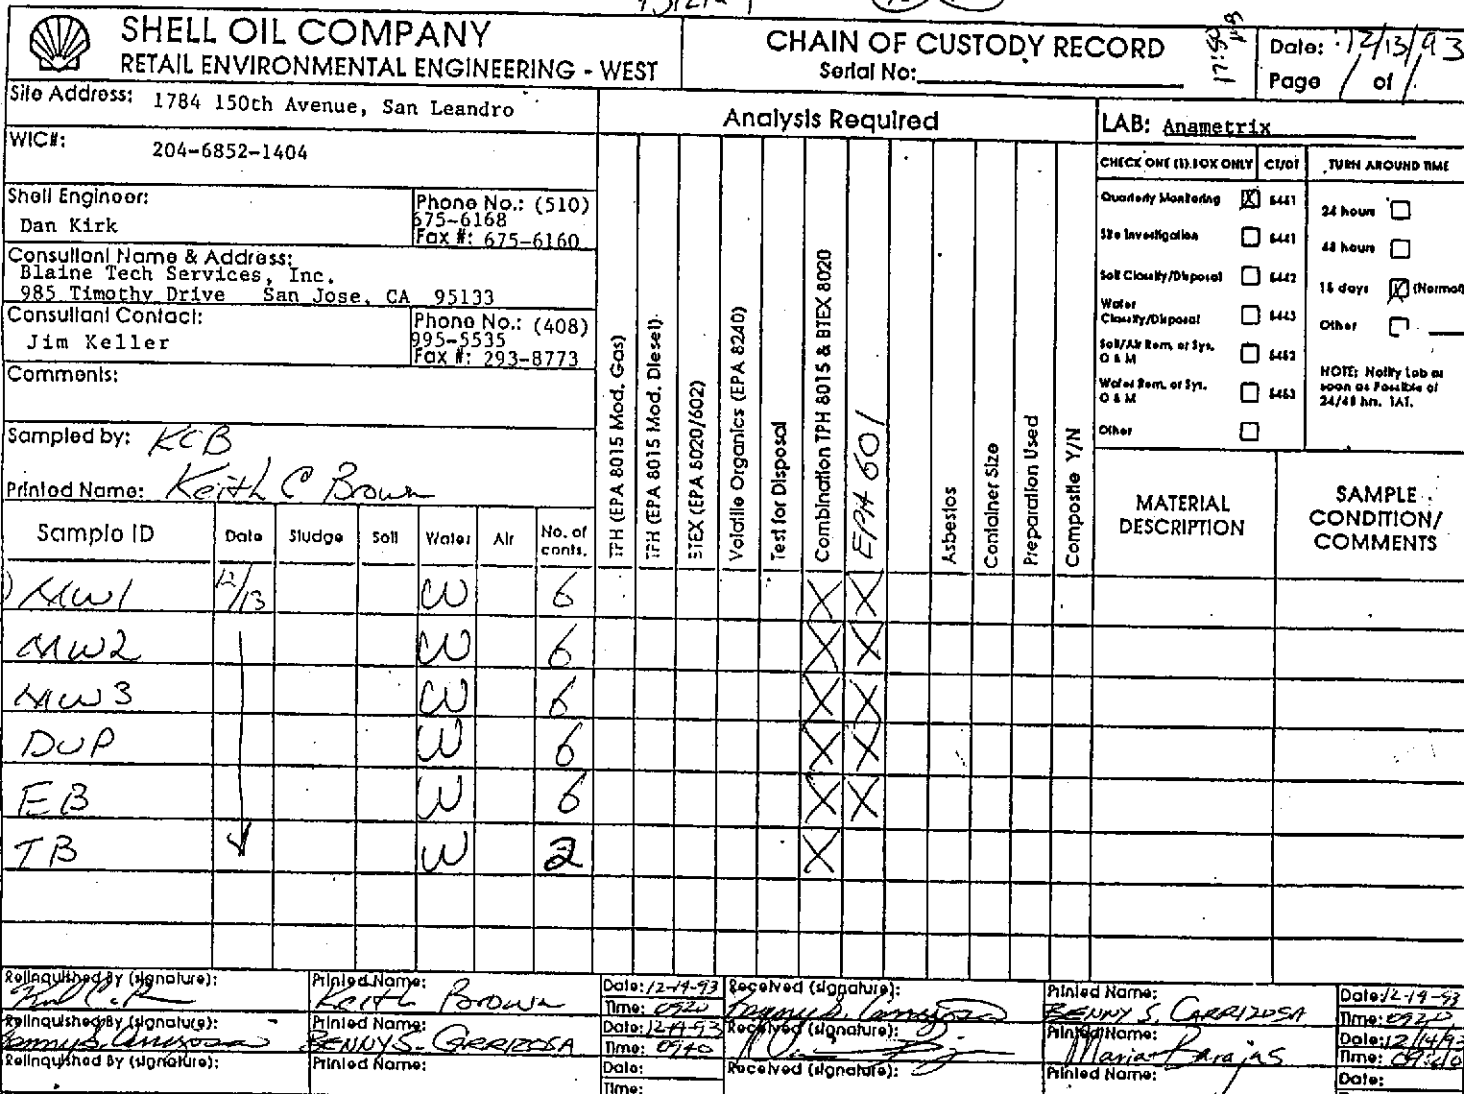 SHELL OIL COMPANY
RETAIL ENVIRONMENTAL ENGINEERING - WEST
CHAIN OF CUSTODY RECORD
Serial No:
17:50
Date: 12/13/93
Page 1 of 1
Site Address: 1784 150th Avenue, San Leandro
WIC#: 204-6852-1404
Shell Engineer:
Dan Kirk
Phone No.: (510)
675-6168
Fax #: 675-6160
Consultant Name & Address:
Blaine Tech Services, Inc.
985 Timothy Drive San Jose, CA 95133
Consultant Contact:
Jim Keller
Phone No.: (408)
995-5535
Fax #: 293-8773
Comments:
Sampled by: KCB
Printed Name: Keith C Brown
Analysis Required
LAB: Anametrix
CHECK ONE (1) BOX ONLY CT/DT TURN AROUND TIME
Quarterly Monitoring X 6441
Site Investigation 6441
Soil Classify/Disposal 6442
Water
Classify/Disposal 6443
Soil/Air Rem. or Sys.
O & M 6452
Water Rem. or Sys.
O & M 6453
Other
24 hours
48 hours
15 days X (Normal)
Other
NOTE: Notify Lab as
soon as Possible of
24/48 hrs. TAT.
Sample ID Date Sludge Soil Water Air No. of
conts.
TPH (EPA 8015 Mod. Gas)
TPH (EPA 8015 Mod. Diesel)
BTEX (EPA 8020/602)
Volatile Organics (EPA 8240)
Test for Disposal
Combination TPH 8015 & BTEX 8020
EPA 601
Asbestos
Container Size
Preparation Used
Composite Y/N
MATERIAL
DESCRIPTION
SAMPLE
CONDITION/
COMMENTS
MW1 12/13 W 6 X X
MW2 W 6 X X
MW3 W 6 X X
DUP W 6 X X
EB W 6 X X
TB W 2 X
Relinquished By (signature):
Printed Name: Keith Brown
Date: 12-14-93
Time: 0920
Received (signature):
Printed Name: BENNY S. CARRIZOSA
Date: 12-14-93
Time: 0920
Relinquished By (signature):
Printed Name: BENNY S. CARRIZOSA
Date: 12-14-93
Time: 0940
Received (signature):
Printed Name: Maria Barajas
Date: 12/14/93
Time: 0940
Relinquished By (signature):
Printed Name:
Date:
Time:
Received (signature):
Printed Name:
Date: